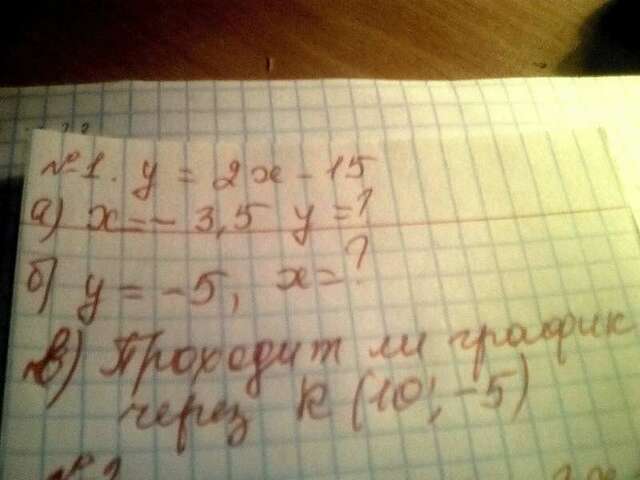 №1. y = 2x - 15
а) x = - 3,5 y = ?
б) y = -5, x = ?
в) Проходит ли график
через К (10; -5)
№2